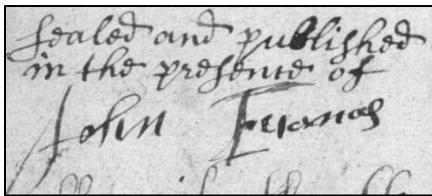 sealed and published
in the presence of
John